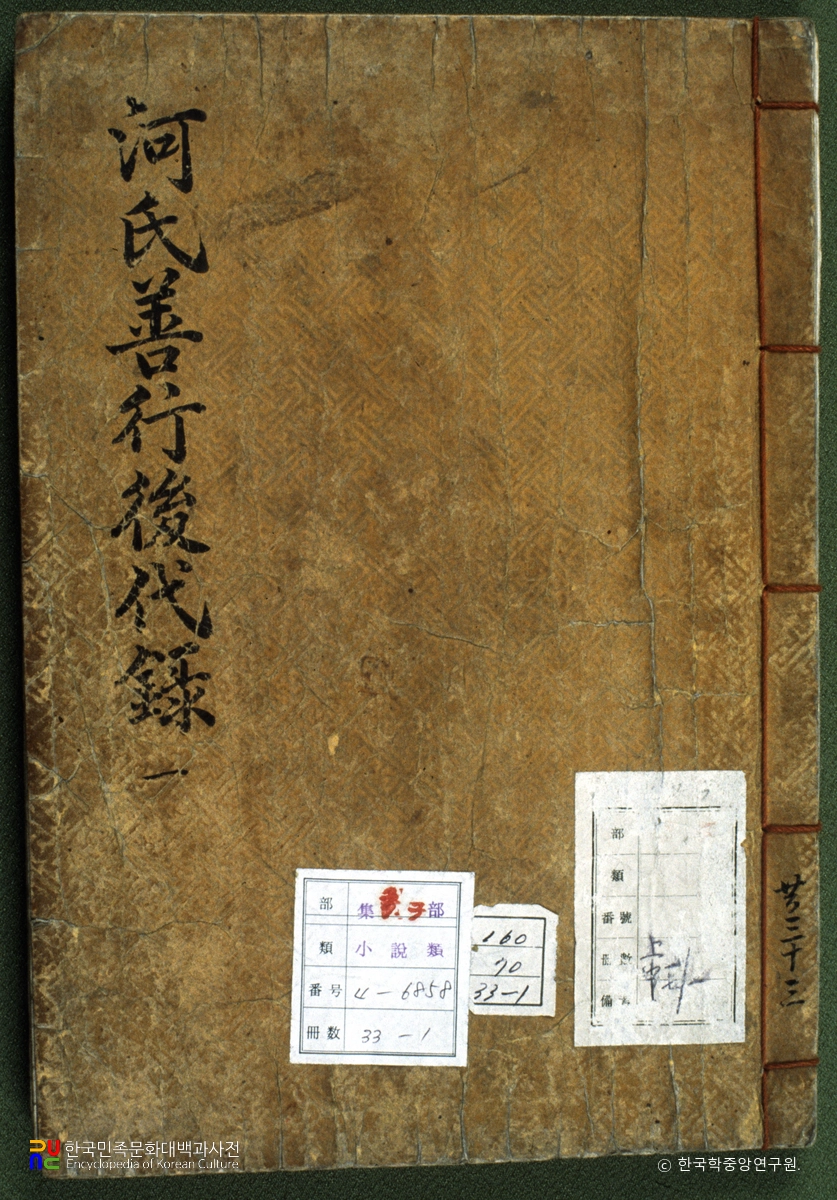 河氏善行後代錄 一
共三十三
部 集 子 部
類 小說類
番号 4-6858
冊数 33-1
160
70
33-1
部
類
番號
冊數
備
한국민족문화대백과사전
Encyclopedia of Korean Culture
ⓒ 한국학중앙연구원.